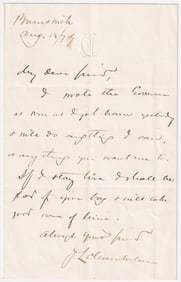 Brunswick
Aug. 18/79
My dear friend,
I wrote the Governor
as soon as I got home yesterday
& will do anything I can,
or anything you want me to.
If I stay here I shall be
glad if your boy & will take
good care of him.
Always your friend
J L Chamberlain